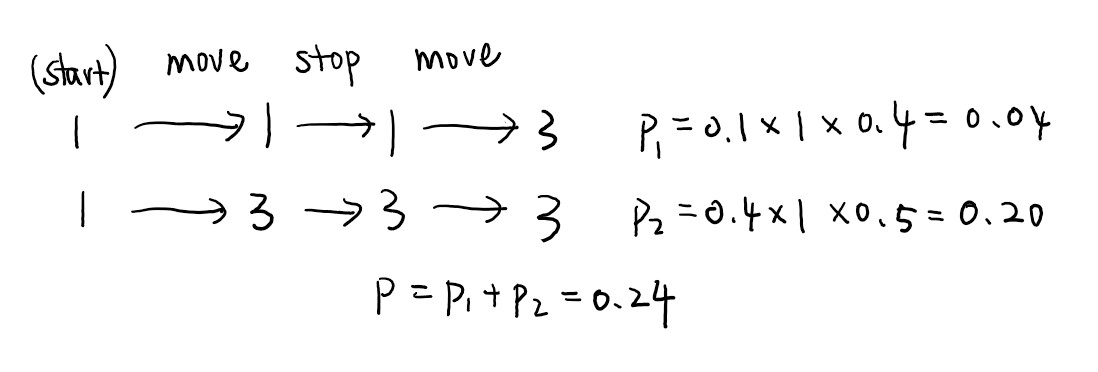 (start) move stop move
1 → 1 → 1 → 3 P₁ = 0.1 × 1 × 0.4 = 0.04
1 → 3 → 3 → 3 P₂ = 0.4 × 1 × 0.5 = 0.20
P = P₁ + P₂ = 0.24